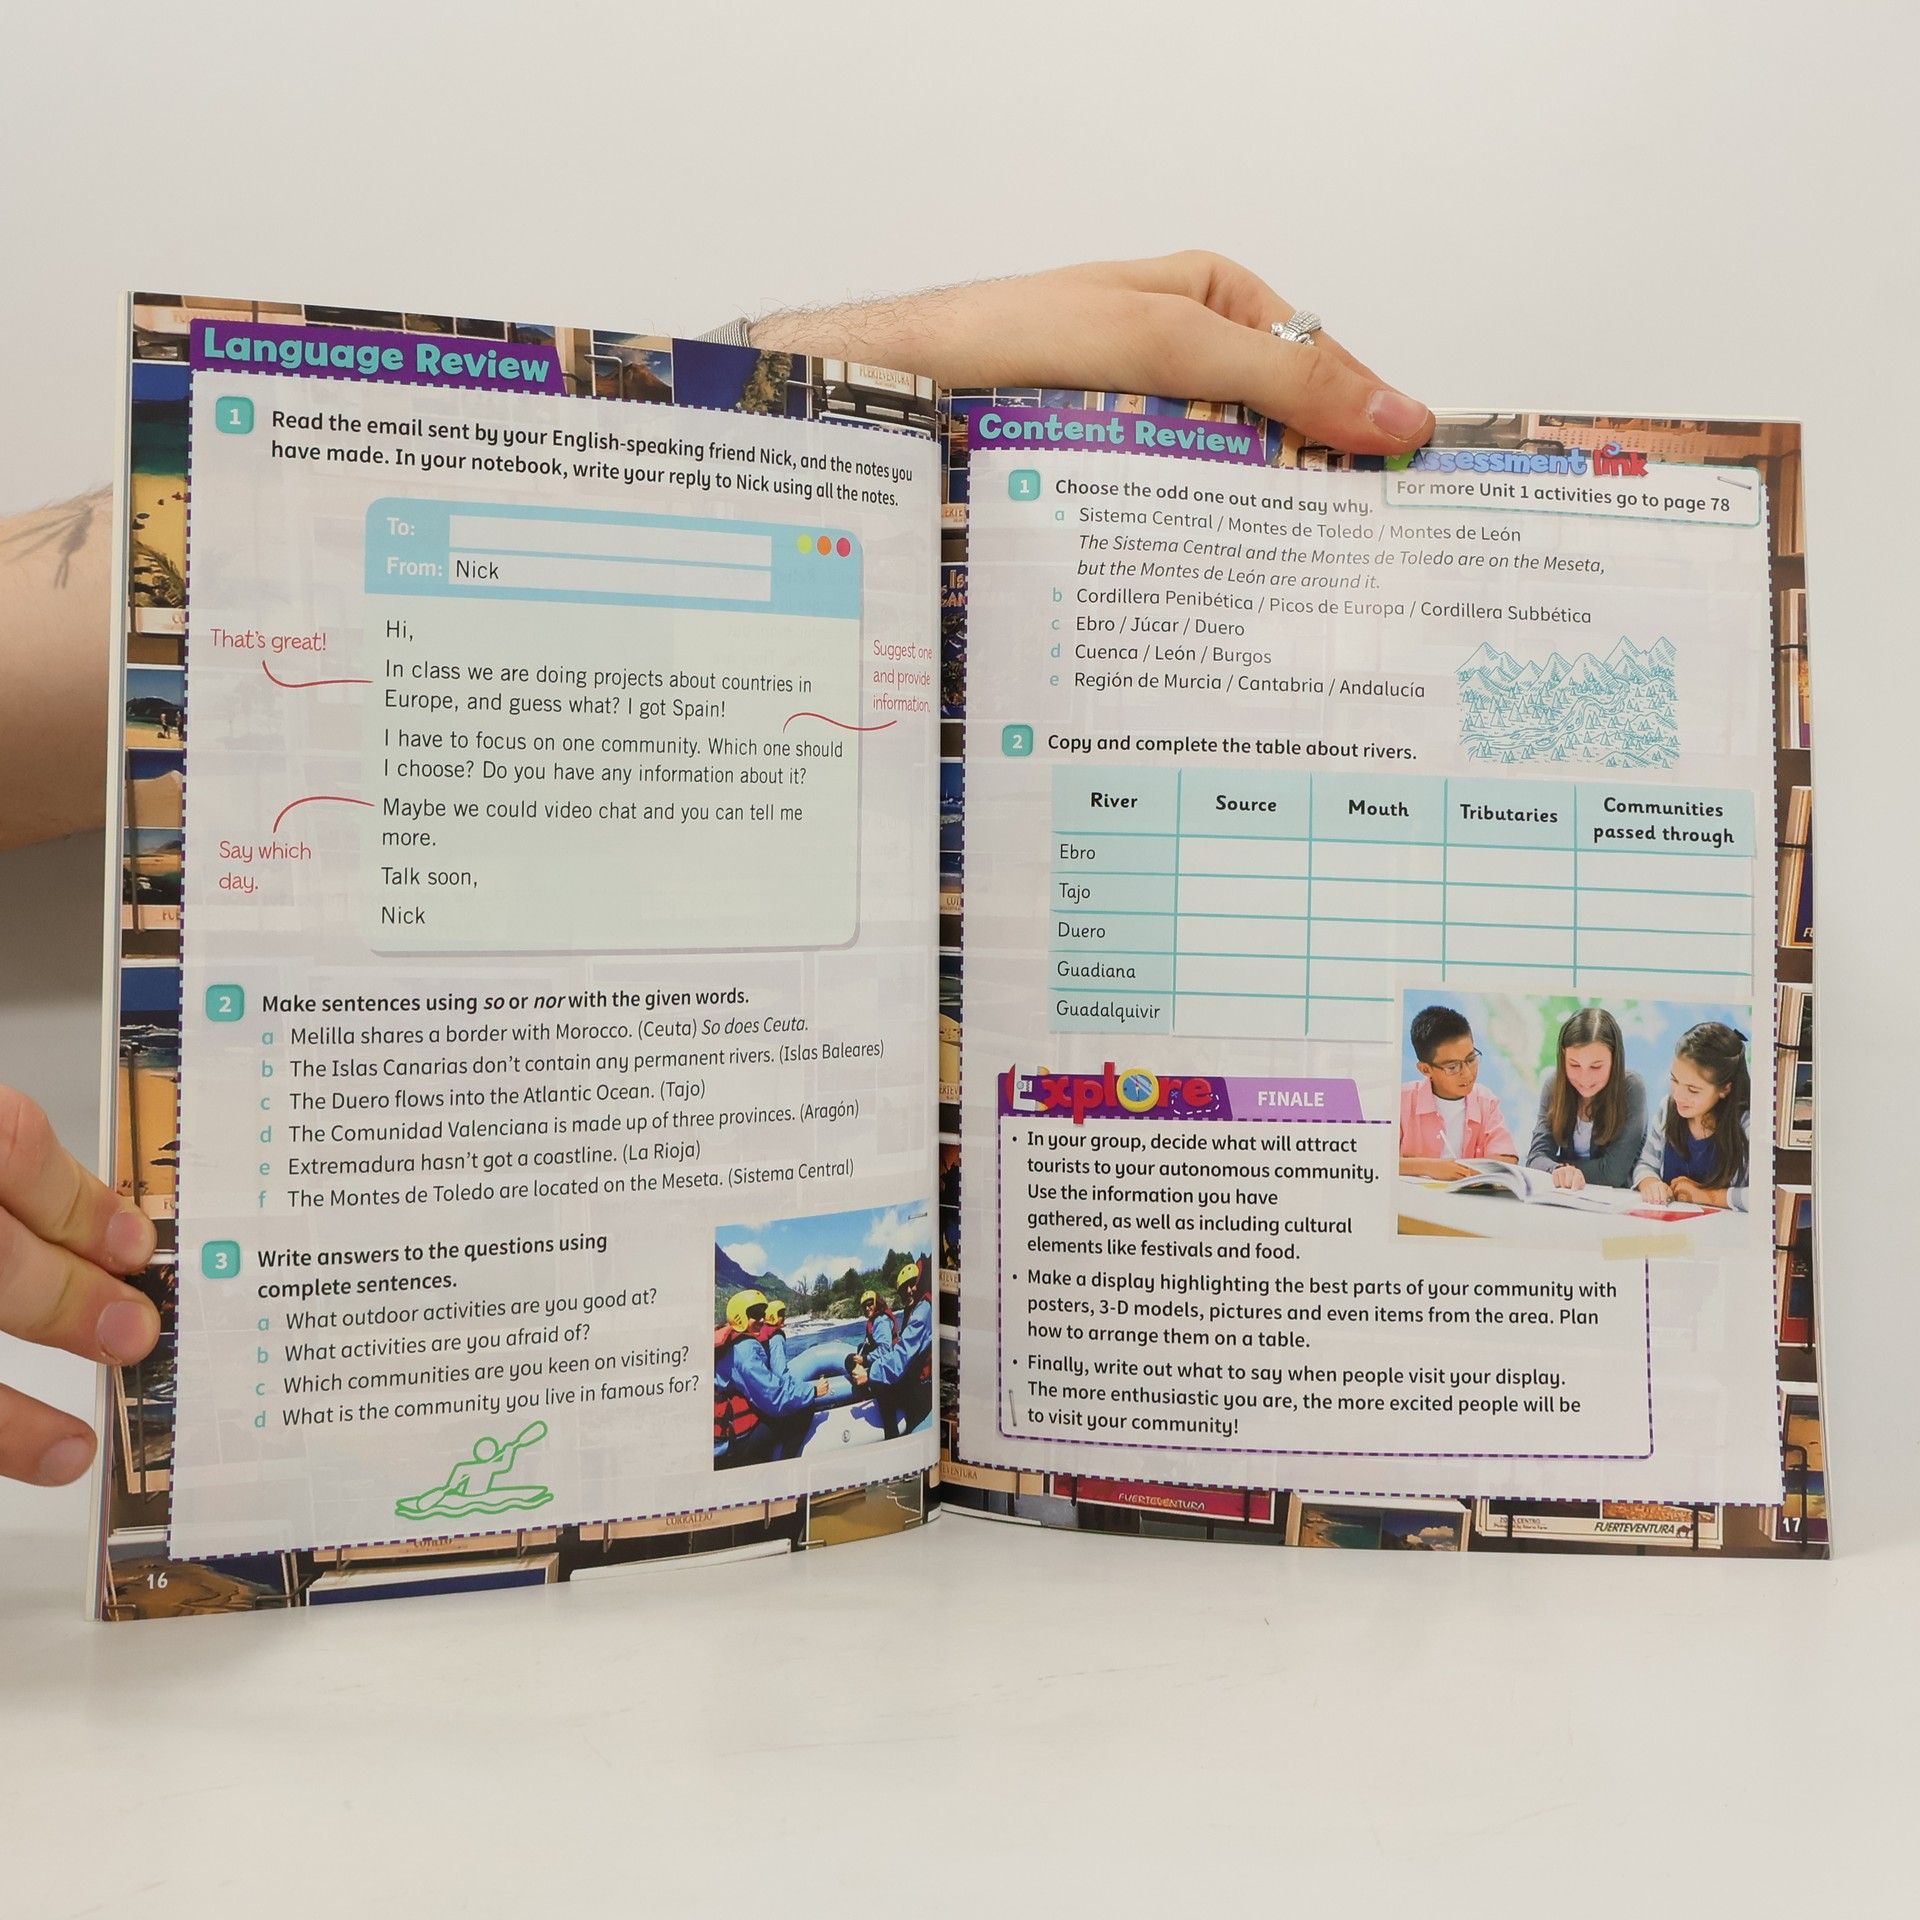 Language Review
1 Read the email sent by your English-speaking friend Nick, and the notes you
have made. In your notebook, write your reply to Nick using all the notes.
To:
From: Nick
Hi,
That's great!
In class we are doing projects about countries in
Europe, and guess what? I got Spain!
Suggest one
and provide
information.
I have to focus on one community. Which one should
I choose? Do you have any information about it?
Maybe we could video chat and you can tell me
more.
Say which
day.
Talk soon,
Nick
2 Make sentences using so or nor with the given words.
a Melilla shares a border with Morocco. (Ceuta) So does Ceuta.
b The Islas Canarias don't contain any permanent rivers. (Islas Baleares)
c The Duero flows into the Atlantic Ocean. (Tajo)
d The Comunidad Valenciana is made up of three provinces. (Aragón)
e Extremadura hasn't got a coastline. (La Rioja)
f The Montes de Toledo are located on the Meseta. (Sistema Central)
3 Write answers to the questions using
complete sentences.
a What outdoor activities are you good at?
b What activities are you afraid of?
c Which communities are you keen on visiting?
d What is the community you live in famous for?
16
Content Review
Assessment link
For more Unit 1 activities go to page 78
1 Choose the odd one out and say why.
a Sistema Central / Montes de Toledo / Montes de León
The Sistema Central and the Montes de Toledo are on the Meseta,
but the Montes de León are around it.
b Cordillera Penibética / Picos de Europa / Cordillera Subbética
c Ebro / Júcar / Duero
d Cuenca / León / Burgos
e Región de Murcia / Cantabria / Andalucía
2 Copy and complete the table about rivers.
River Source Mouth Tributaries Communities passed through
Ebro
Tajo
Duero
Guadiana
Guadalquivir
Explore FINALE
• In your group, decide what will attract
tourists to your autonomous community.
Use the information you have
gathered, as well as including cultural
elements like festivals and food.
• Make a display highlighting the best parts of your community with
posters, 3-D models, pictures and even items from the area. Plan
how to arrange them on a table.
• Finally, write out what to say when people visit your display.
The more enthusiastic you are, the more excited people will be
to visit your community!
FUERTEVENTURA
FUERTEVENTURA
17